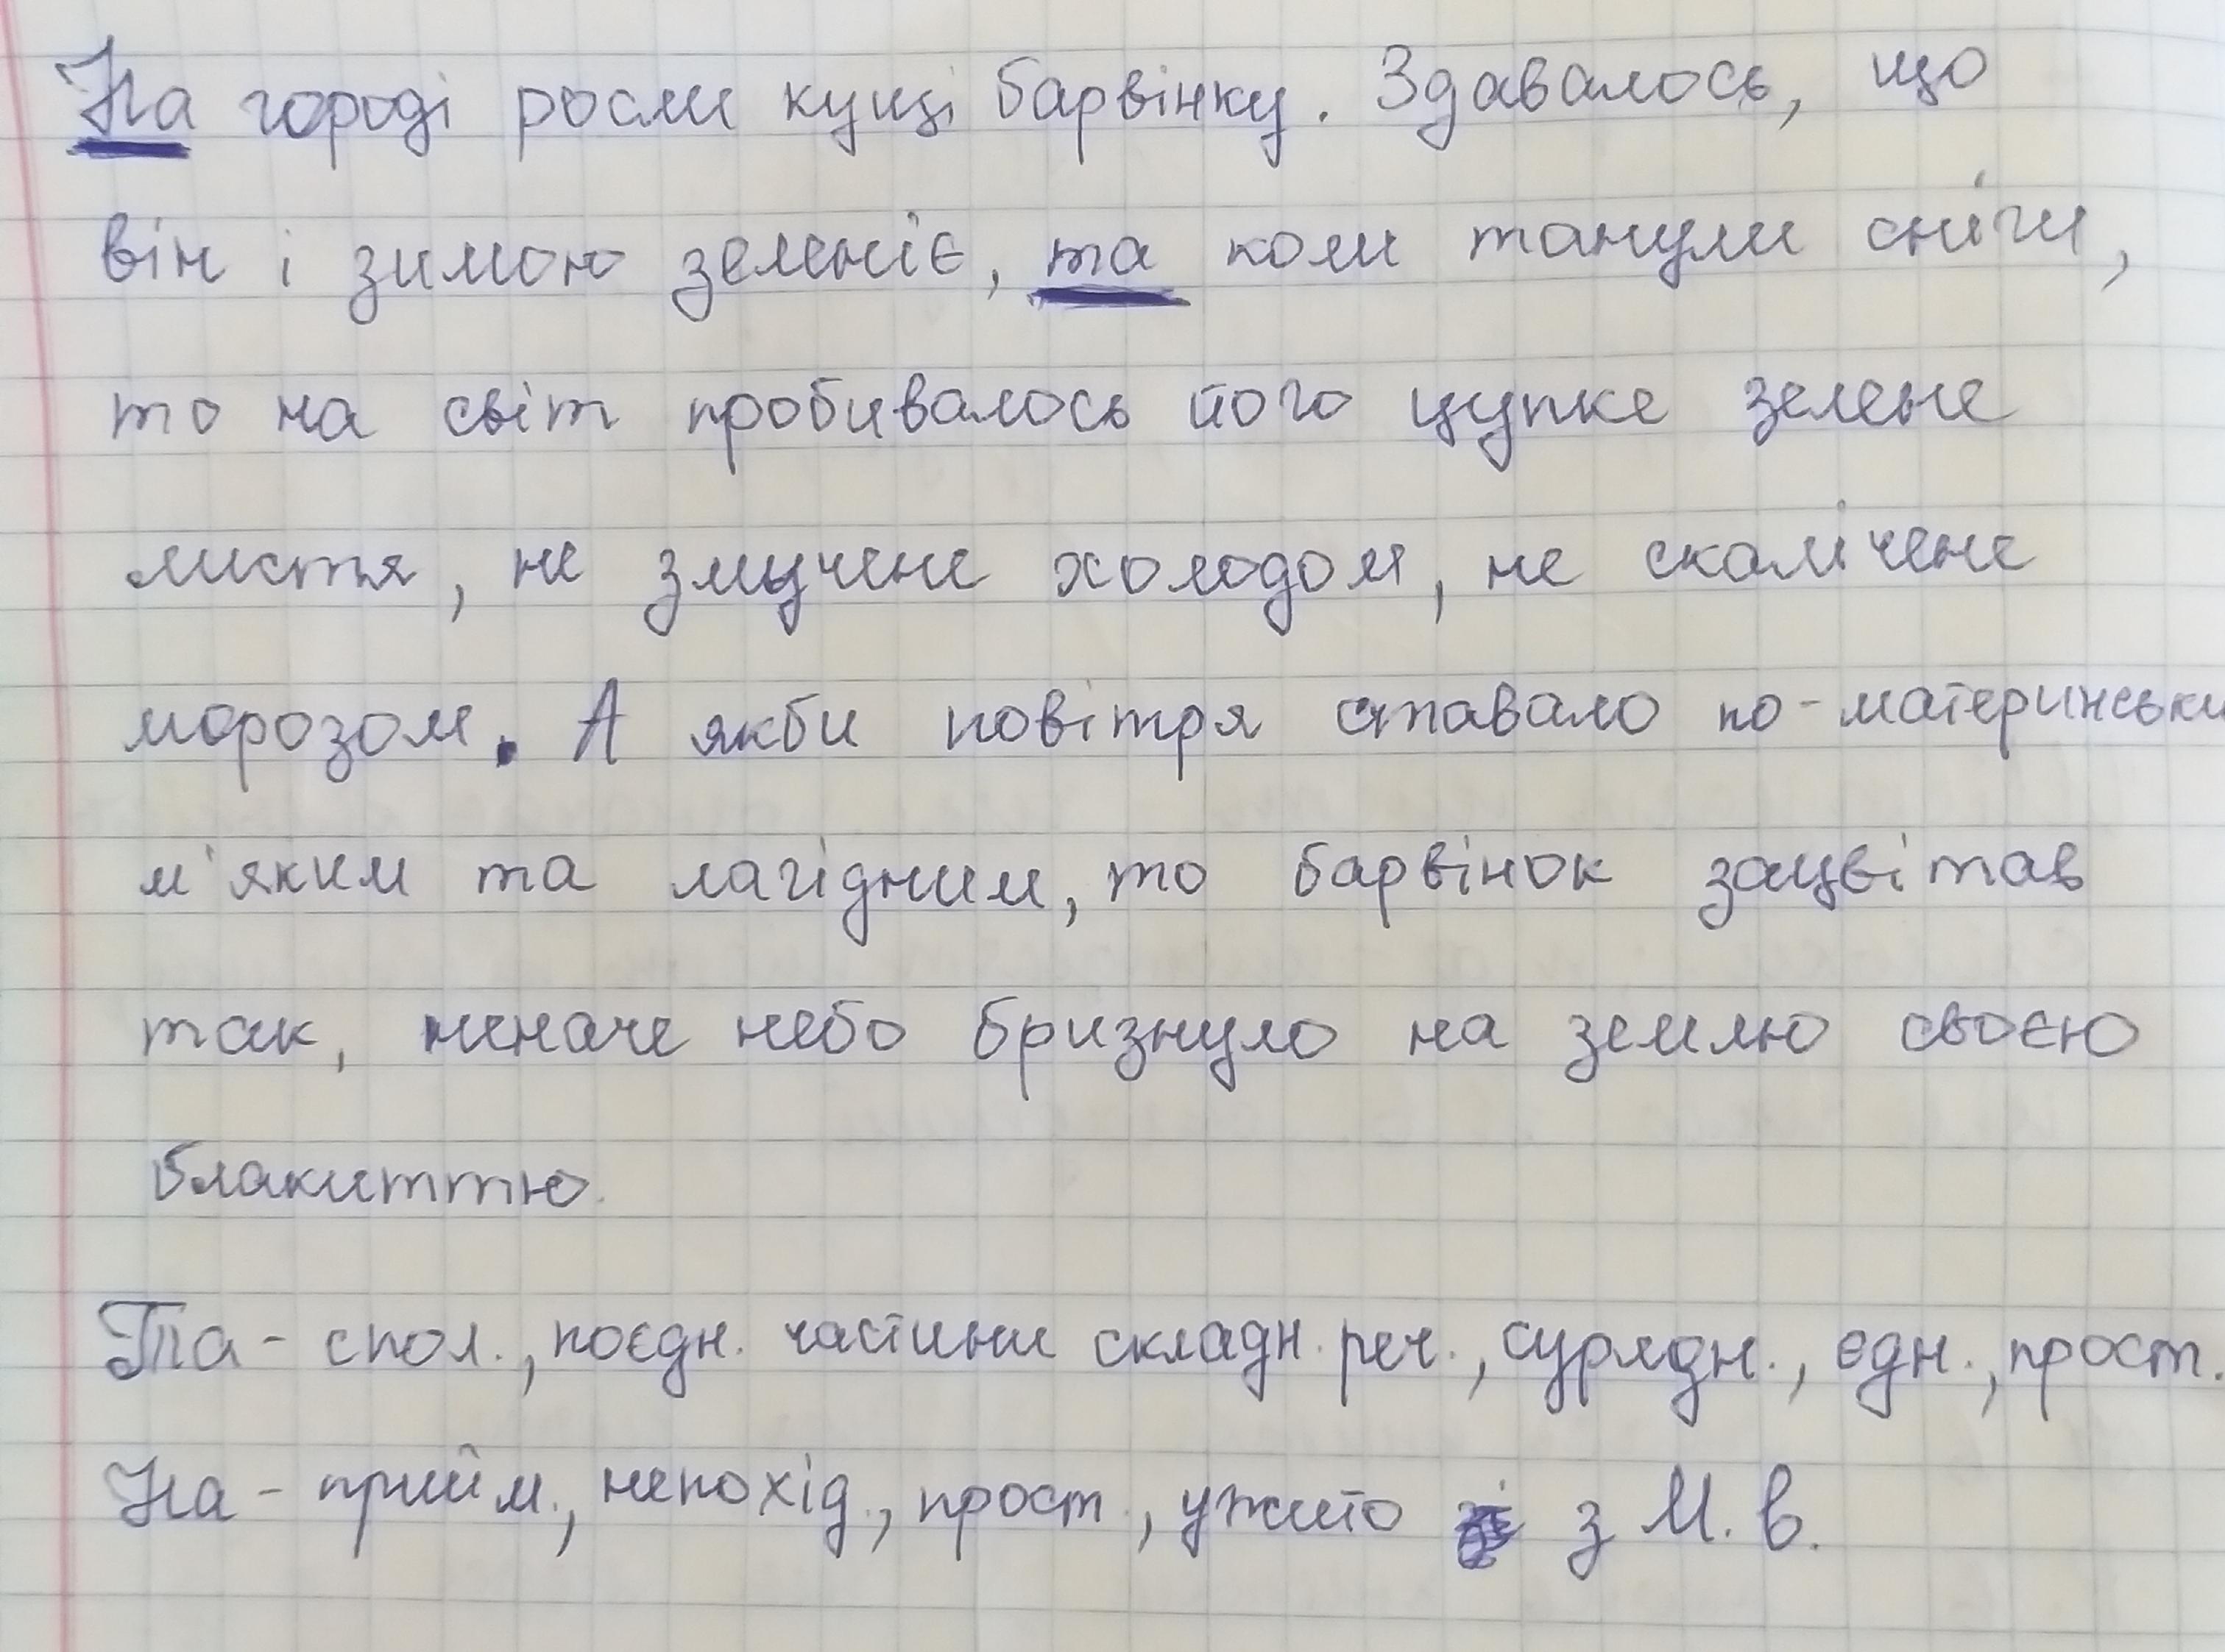 На городі росли кущі барвінку. Здавалось, що
він і зимою зеленіє, та коли танули сніги,
то на світ пробивалось його цупке зелене
листя, не змучене холодом, не скалічене
морозом. А якби повітря ставало по-материнськи
м'яким та лагідним, то барвінок зацвітав
так, неначе небо бризнуло на землю своєю
блакиттю.
Та - спол., поєдн. частини складн. реч., сурядн., єдн., прост.
На - прийм., непохід., прост., ужито з М. в.